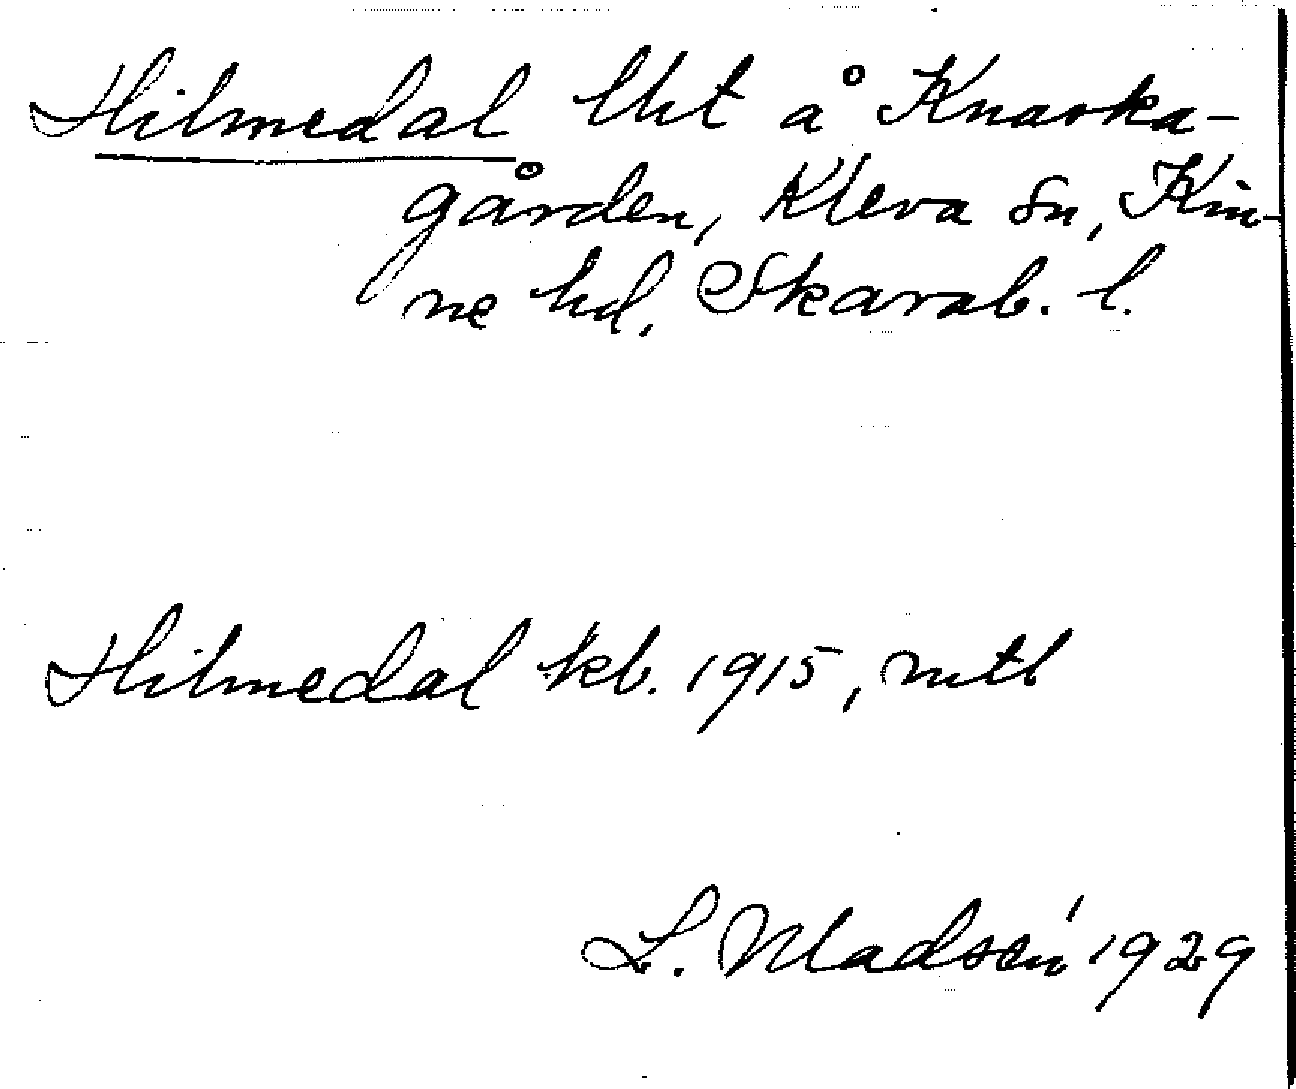 Hilmedal lht å Knaska-
gården, Kleva sn, Kin-
ne hd, Skarab. l.
Hilmedal kb. 1915, mtl
L. Madsén 1929